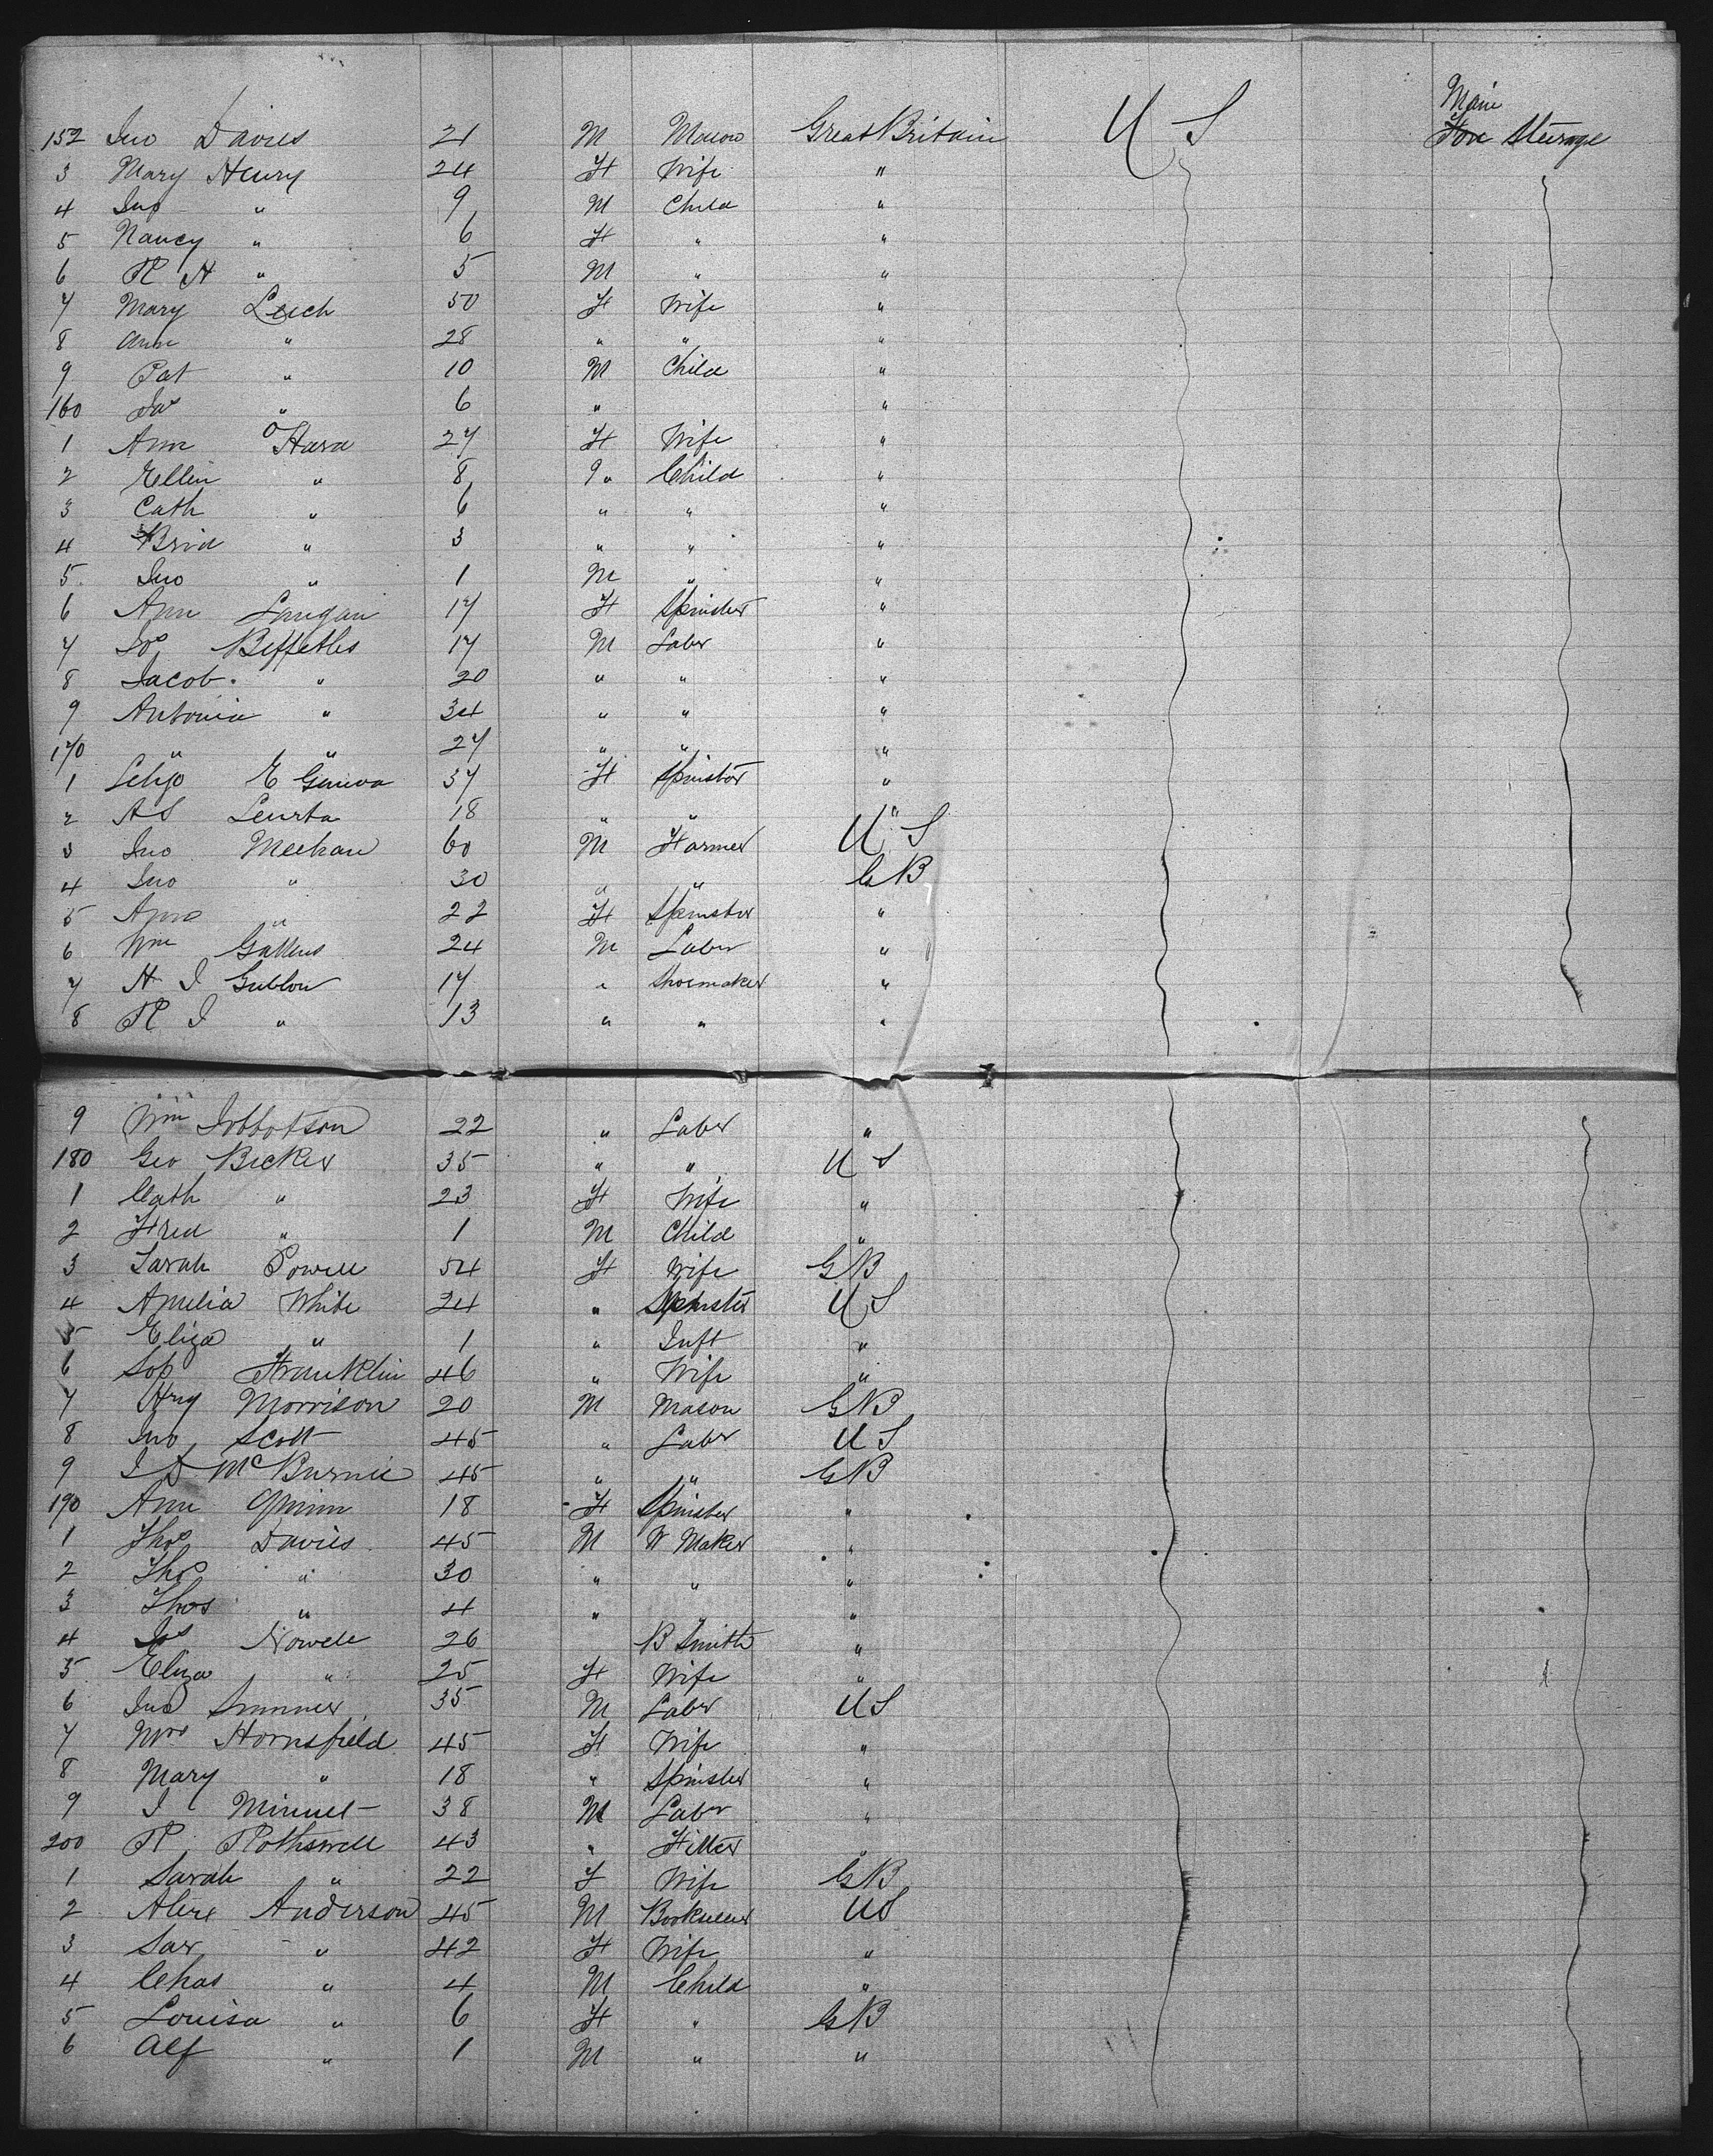 Main
152 Jno Davies 21 M Mason Great Britain U S Fore Steerage
3 Mary Henry 24 F Wife "
4 Jno " 9 M Child "
5 Nancy " 6 F " "
6 R H " 5 M " "
7 Mary Leech 50 F Wife "
8 Ann " 28 " " "
9 Pat " 10 M Child "
160 Jas " 6 " "
1 Ann O'Hara 27 F Wife "
2 Ellen " 8 " Child "
3 Cath " 6 " " "
4 Brid " 3 " " "
5 Jno " 1 M " "
6 Ann Langan 17 F Spinster "
7 Jos 17 M Labr "
8 Jacob " 20 " " "
9 Antonia " 34 " " "
170 " " 27 " " "
1 37 F Spinster "
2 A S 18 " " "
3 Jno Meehan 60 M Farmer U S
4 Jno " 30 " " G B
5 Anne " 22 F Spinster "
6 Wm 24 M Labr "
7 H J 17 " Shoemaker "
8 R J " 13 " " "
9 Wm Ibbotson 22 " Labr "
180 Geo Becker 35 " " U S
1 Cath " 23 F Wife "
2 Fred " 1 M Child "
3 Sarah Powell 54 F Wife G B
4 Amelia White 24 " Spinster U S
5 Eliza " 1 " Inft "
6 Sop Franklin 46 " Wife "
7 Hry Morrison 20 M Mason G B
8 Jno Scott 45 " Labr U S
9 J D McBurnie 45 " " G B
190 Ann Quinn 18 F Spinster "
1 Thos Davies 45 M W Maker "
2 Thos " 30 " " "
3 Thos " 4 " "
4 Jos Nowell 26 B Smith "
5 Eliza " 25 F Wife "
6 Jno Sumner 35 M Labr U S
7 Mrs Hornsfield 45 F Wife "
8 Mary " 18 " Spinster "
9 J 38 M Labr "
200 R Rothswell 43 " Fitter "
1 Sarah " 22 F Wife G B
2 Alex Anderson 45 M US
3 Sar " 42 F Wife "
4 Chas " 4 M Child "
5 Louisa " 6 F " G B
6 Alf " 1 M " "